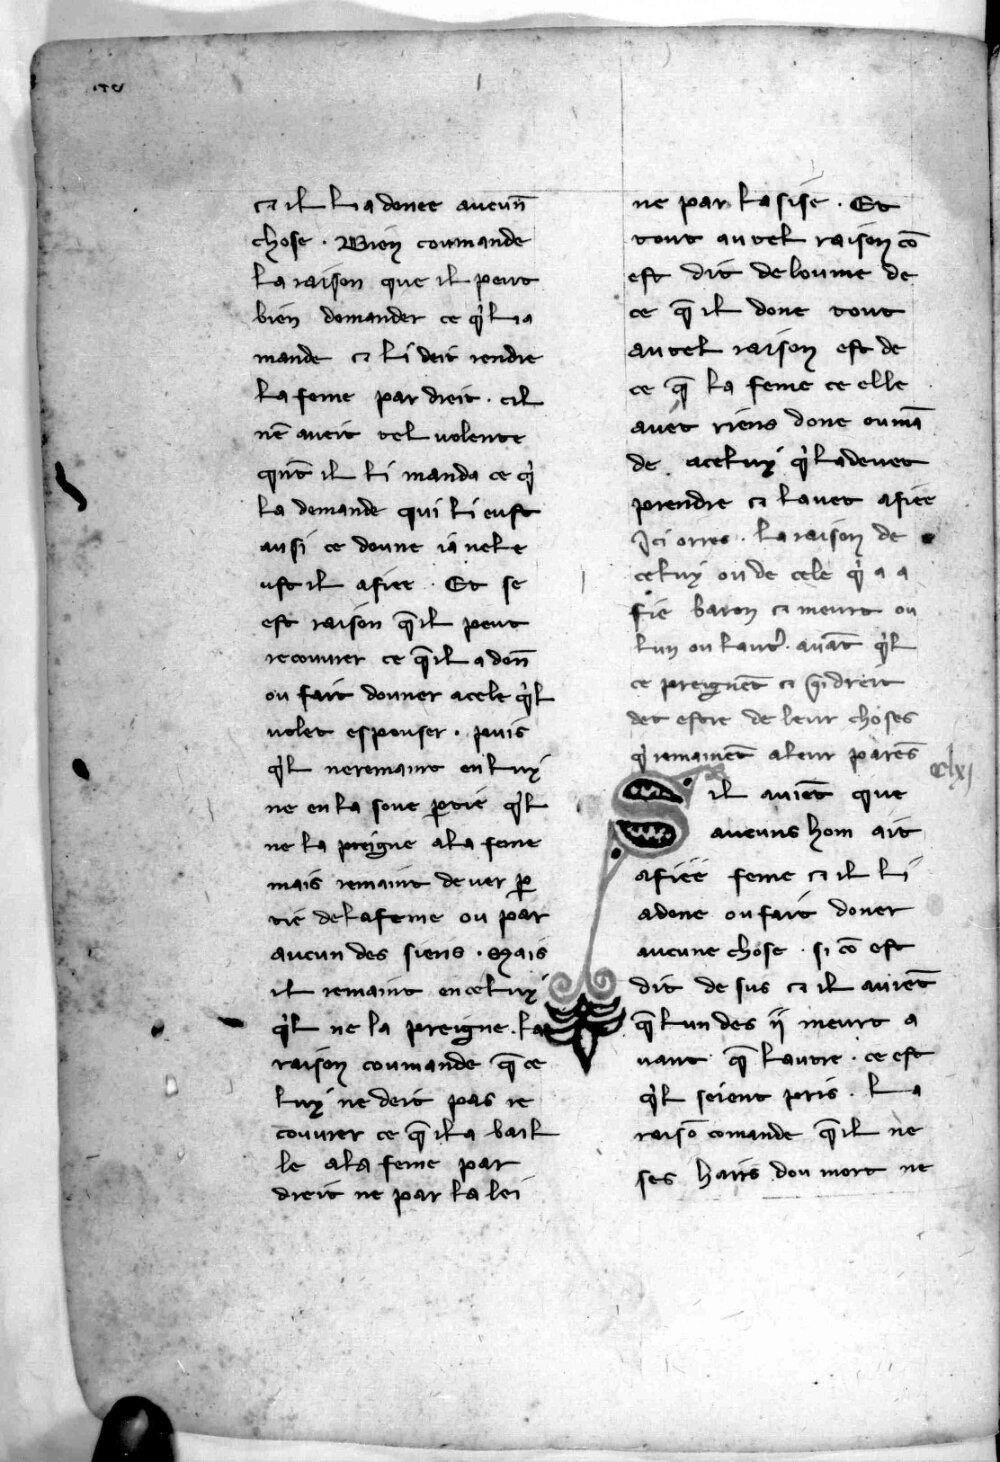 ⁊ il li a donee aucun̄
chose . Bien coumande
la raison que il peut
bien domander ce q̍l li a
mande ⁊ li deit rendre
la feme par dreit . cil
nē aveit tel volente
qn̄t il li manda ce q̍
la demande qui li eust
ausi ce doune ia ne le
ust il afiee . Et se
est raison q̄ il peut
recouvrer ce q̄ il a don̄
ou fait douner a cele q̍l
volet espouser . puis
q̍l ne remaint en luy
ne en la soue ꝑtie q̍l
ne la preigne a la feme
mais remaint dever ꝑ
tie de la feme ou par
aucun des siens . Mais
il remaint en celuy
q̍l ne la preigne . la
raison coumande q̄ ce
luy ne deit pas re
couvrer ce q̄ il a bail
le a la feme par
dreit ne par la lei
ne par lasise . Et
tout autel raison cō
est dit de loume de
ce q̄ il done tout
autel raison est de
ce q̄ la feme ce elle
avet riens done ou mā
de a celuy q̍ la devet
prendre ⁊ lavet afiee
Ici orres . la raison de
celuy ou de cele q̍ a a
fie baron ⁊ meurt ou
lun ou laut̍ . avāt q̍l
ce preignēt ⁊ q̄l dreit
det estre de leur choses
q̍ remainēt a leur parēs
clxj
Sil aviēt que
aucuns hom ait
afiee feme ⁊ il li
a done ou fait doner
aucune chose . si cō est
dit de sus ⁊ il aviēt
q̄ lun des ij meurt a
vant q̄ lautre . ce est
q̍l seient pris . la
raisō comande q̄ il ne
ses hairs dou mort ne